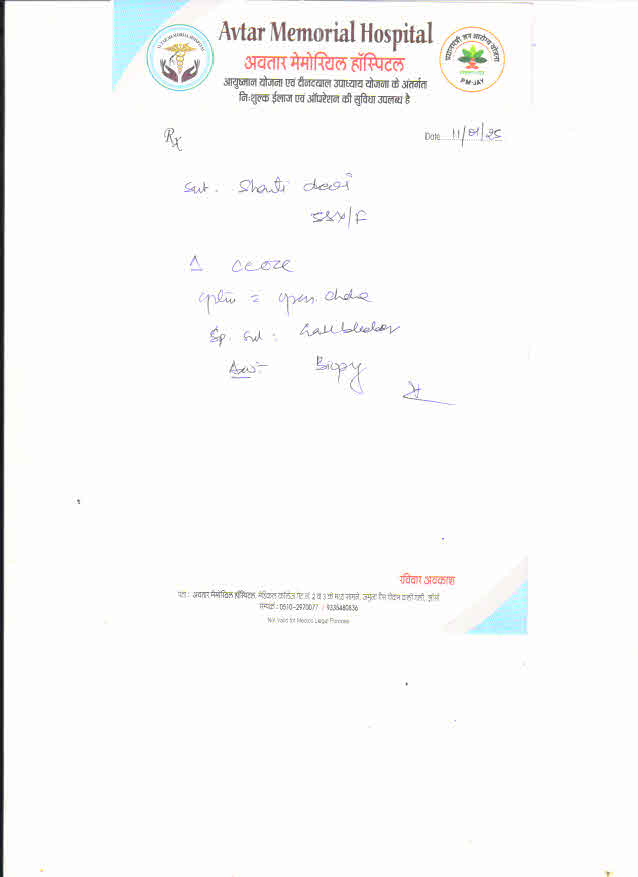 Avtar Memorial Hospital
अवतार मेमोरियल हॉस्पिटल
आयुष्मान योजना एवं दीनदयाल उपाध्याय योजना के अंतर्गत
निःशुल्क ईलाज एवं ऑपरेशन की सुविधा उपलब्ध है
AVTAR MEMORIAL HOSPITAL
प्रधानमंत्री जन आरोग्य योजना
PM-JAY
Rx
Date 11/01/25
Smt. Shanti devi
55y/F
Δ
open
Gallbladder
Adv:- Biopy
रविवार अवकाश
पता : अवतार मेमोरियल हॉस्पिटल, मेडिकल कॉलेज गेट नं. 2 व 3 के मध्य सामने, वाली गली, झाँसी
सम्पर्क : 0510-2970077 / 9335480836
Not Valid for Medico Legal Purpose